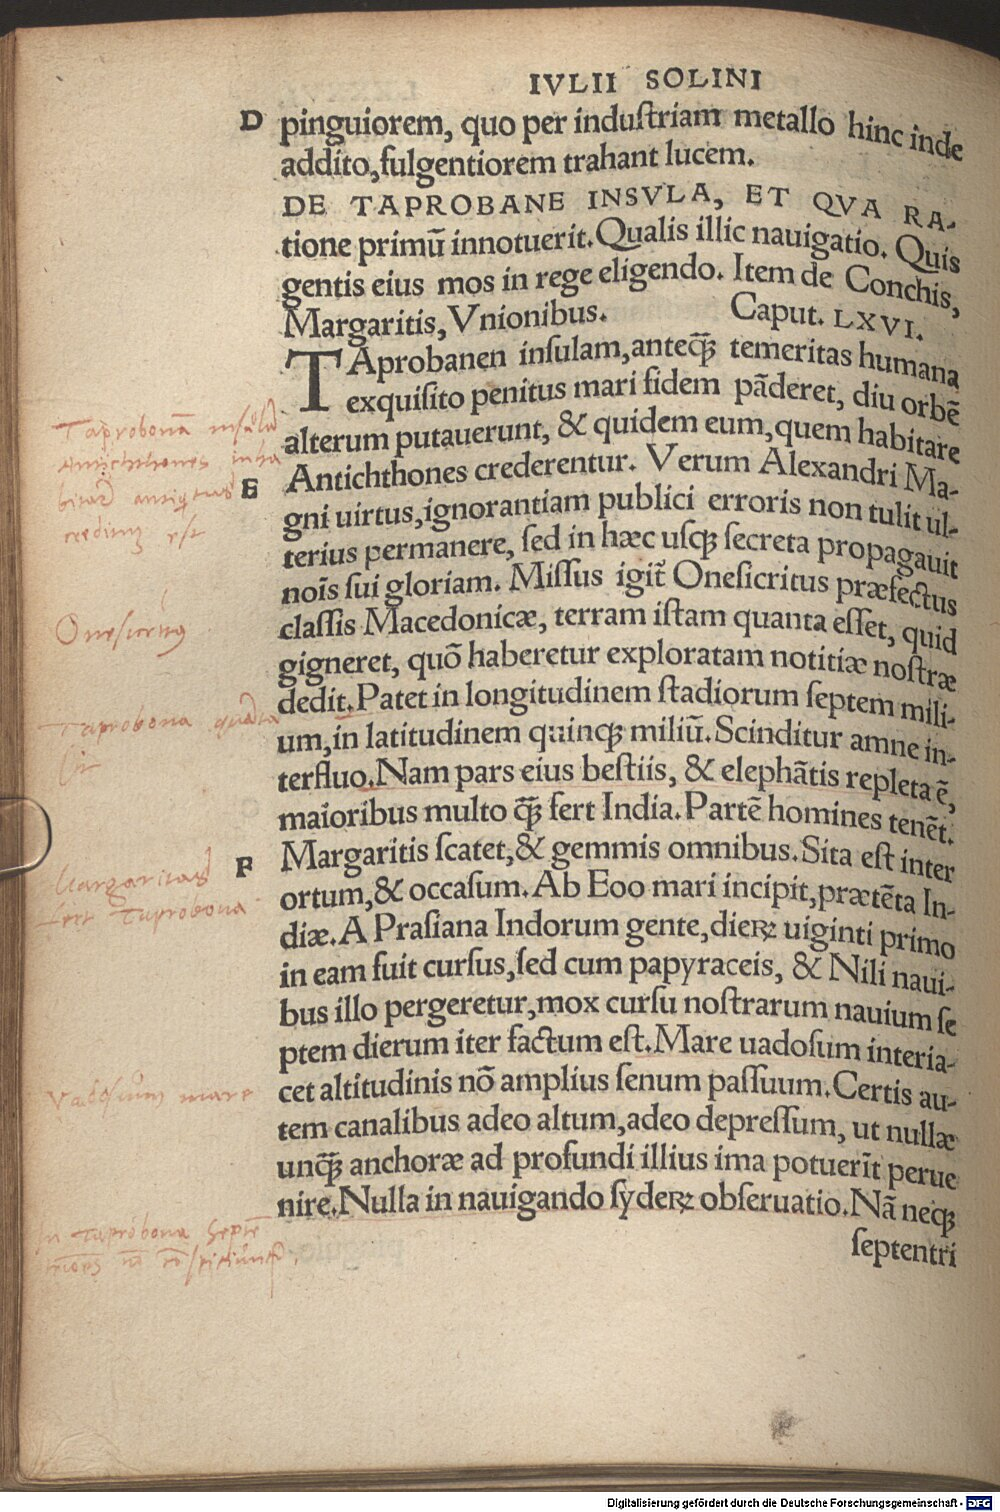 IVLII SOLINI
D pinguiorem, quo per induſtriam metallo hinc inde
addito, fulgentiorem trahant lucem.
DE TAPROBANE INSVLA, ET QVA RA-
tione primū innotuerit. Qualis illic nauigatio. Quis
gentis eius mos in rege eligendo. Item de Conchis,
Margaritis, Vnionibus. Caput. LXVI.
TAprobanen inſulam, anteq̃ꝫ temeritas humana
exquiſito penitus mari fidem pāderet, diu orbē
alterum putauerunt, & quidem eum, quem habitare
E Antichthones crederentur. Verum Alexandri Ma-
gni uirtus, ignorantiam publici erroris non tulit ul-
terius permanere, ſed in hæc uſqꝫ ſecreta propagauit
noīs ſui gloriam. Miſſus igit̃ Oneſicritus præfectus
claſſis Macedonicæ, terram iſtam quanta eſſet, quid
gigneret, quō haberetur exploratam notitiæ noſtræ
dedit. Patet in longitudinem ſtadiorum ſeptem mili-
um, in latitudinem quinqꝫ miliū. Scinditur amne in-
terfluo. Nam pars eius beſtiis, & elephātis repleta ē,
maioribus multo q̃ꝫ fert India. Partē homines tenēt.
F Margaritis ſcatet, & gemmis omnibus. Sita eſt inter
ortum, & occaſum. Ab Eoo mari incipit, prætēta In-
diæ. A Praſiana Indorum gente, dieꝝ uiginti primo
in eam fuit curſus, ſed cum papyraceis, & Nili naui-
bus illo pergeretur, mox curſu noſtrarum nauium ſe
ptem dierum iter factum eſt. Mare uadoſum interia-
cet altitudinis nō amplius ſenum paſſuum. Certis au-
tem canalibus adeo altum, adeo depreſſum, ut nullæ
unq̃ꝫ anchoræ ad profundi illius ima potuerīt perue
nire. Nulla in nauigando ſyderꝝ obſeruatio. Nā neqꝫ
ſeptentri
Taprobonā insulā
Antichthones inha
bitare antiquitus
creditum est
Onesicritus
Taprobona quanta
sit
Margaritas
fert Taprobona
Vadosum mare
In Taprobona Septē
Digitalisierung gefördert durch die Deutsche Forschungsgemeinschaft - DFG